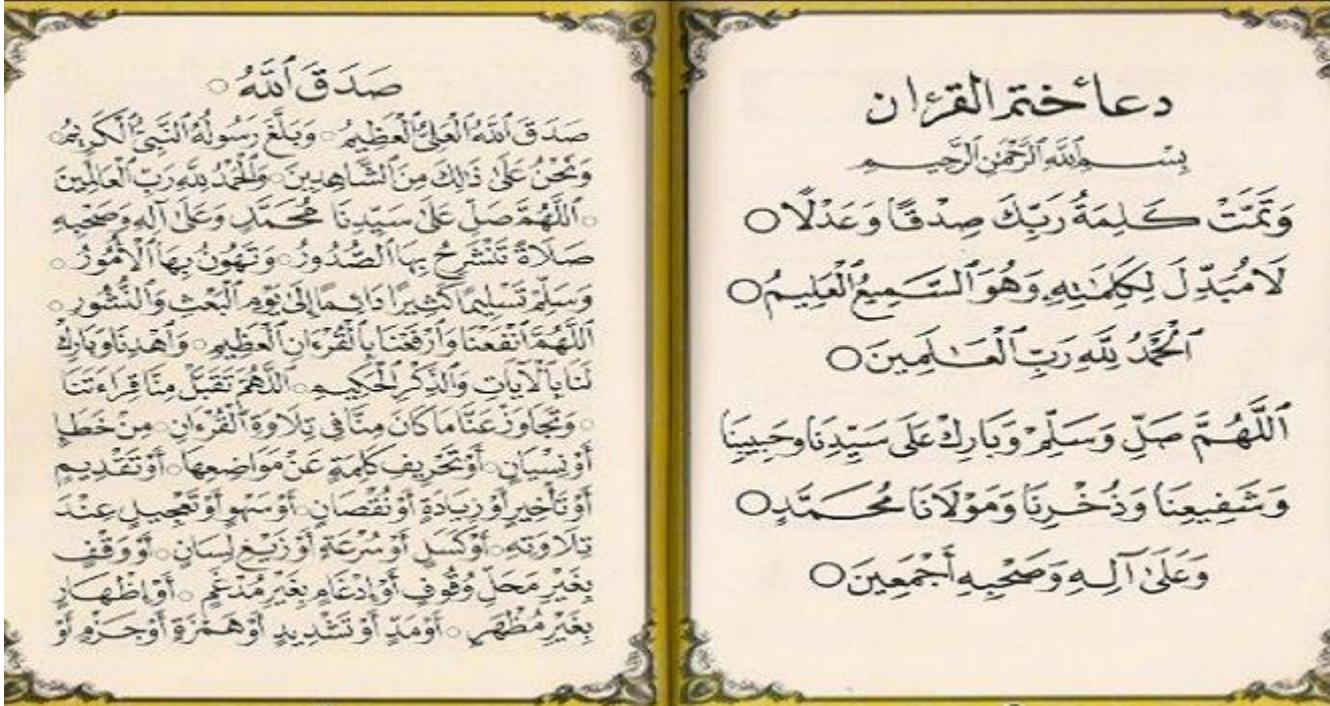 دعائختم القرءان
بِسْمِ ٱللَّهِ ٱلرَّحْمَٰنِ ٱلرَّحِيمِ
وَتَمَّتْ كَلِمَةُ رَبِّكَ صِدْقًا وَعَدْلًا ○
لَا مُبَدِّلَ لِكَلِمَٰتِهِ وَهُوَ ٱلسَّمِيعُ ٱلْعَلِيمُ ○
ٱلْحَمْدُ لِلَّهِ رَبِّ ٱلْعَٰلَمِينَ ○
ٱللَّهُمَّ صَلِّ وَسَلِّمْ وَبَارِكْ عَلَى سَيِّدِنَا وَحَبِيبِنَا
وَشَفِيعِنَا وَذُخْرِنَا وَمَوْلَانَا مُحَمَّدٍ ○
وَعَلَىٰ آلِهِ وَصَحْبِهِ أَجْمَعِينَ ○
صَدَقَ ٱللَّهُ ○
صَدَقَ ٱللَّهُ ٱلْعَلِيُّ ٱلْعَظِيمُ ○ وَبَلَّغَ رَسُولُهُ ٱلنَّبِيُّ ٱلْكَرِيمُ ○
وَنَحْنُ عَلَىٰ ذَٰلِكَ مِنَ ٱلشَّاهِدِينَ ○ وَٱلْحَمْدُ لِلَّهِ رَبِّ ٱلْعَالَمِينَ
○ ٱللَّهُمَّ صَلِّ عَلَىٰ سَيِّدِنَا مُحَمَّدٍ وَعَلَىٰ آلِهِ وَصَحْبِهِ
صَلَاةً تَنْشَرِحُ بِهَا ٱلصُّدُورُ ○ وَتَهُونُ بِهَا ٱلْأُمُورُ ○
وَسَلِّمْ تَسْلِيمًا كَثِيرًا دَائِمًا إِلَىٰ يَوْمِ ٱلْبَعْثِ وَالنُّشُورِ ○
ٱللَّهُمَّ ٱنْفَعْنَا وَٱرْفَعْنَا بِٱلْقُرْءَانِ ٱلْعَظِيمِ ○ وَٱهْدِنَا وَبَارِكْ
لَنَا بِٱلْآيَاتِ وَٱلذِّكْرِ ٱلْحَكِيمِ ○ ٱللَّهُمَّ تَقَبَّلْ مِنَّا قِرَاءَتَنَا
○ وَتَجَاوَزْ عَنَّا مَا كَانَ مِنَّا فِي تِلَاوَةِ ٱلْقُرْءَانِ ○ مِنْ خَطَإٍ
أَوْ نِسْيَانٍ ○ أَوْ تَحْرِيفِ كَلِمَةٍ عَنْ مَوَاضِعِهَا ○ أَوْ تَقْدِيمٍ
أَوْ تَأْخِيرٍ أَوْ زِيَادَةٍ أَوْ نُقْصَانٍ ○ أَوْ سَهْوٍ أَوْ تَعْجِيلٍ عِنْدَ
تِلَاوَتِهِ ○ أَوْ كَسَلٍ أَوْ سُرْعَةٍ أَوْ زَيْغِ لِسَانٍ ○ أَوْ وَقْفٍ
بِغَيْرِ مَحَلِّ وُقُوفٍ أَوْ إِدْغَامٍ بِغَيْرِ مُدْغَمٍ ○ أَوْ إِظْهَارٍ
بِغَيْرِ مُظْهَرٍ ○ أَوْ مَدٍّ أَوْ تَشْدِيدٍ أَوْ هَمْزَةٍ أَوْ جَزْمٍ أَوْ